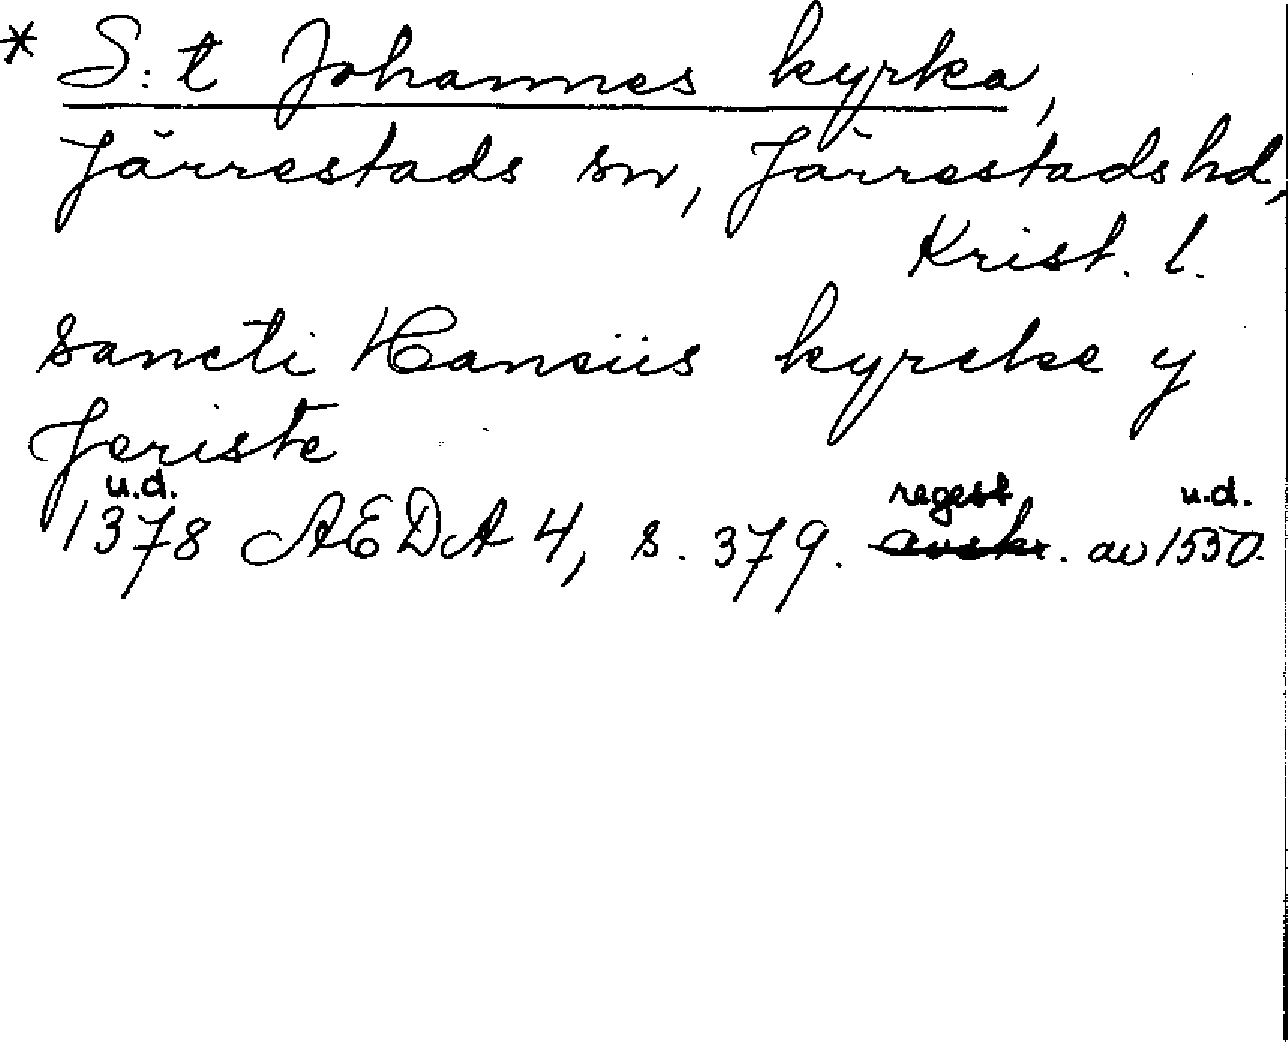 * S:t Johannes kyrka,
Järrestads sn, Järrestads hd,
Krist. l.
sancti Hansiis kyrcke y
Jeriste
u.d. regest u.d.
1378 AEDA 4, s. 379. avskr. av 1550.